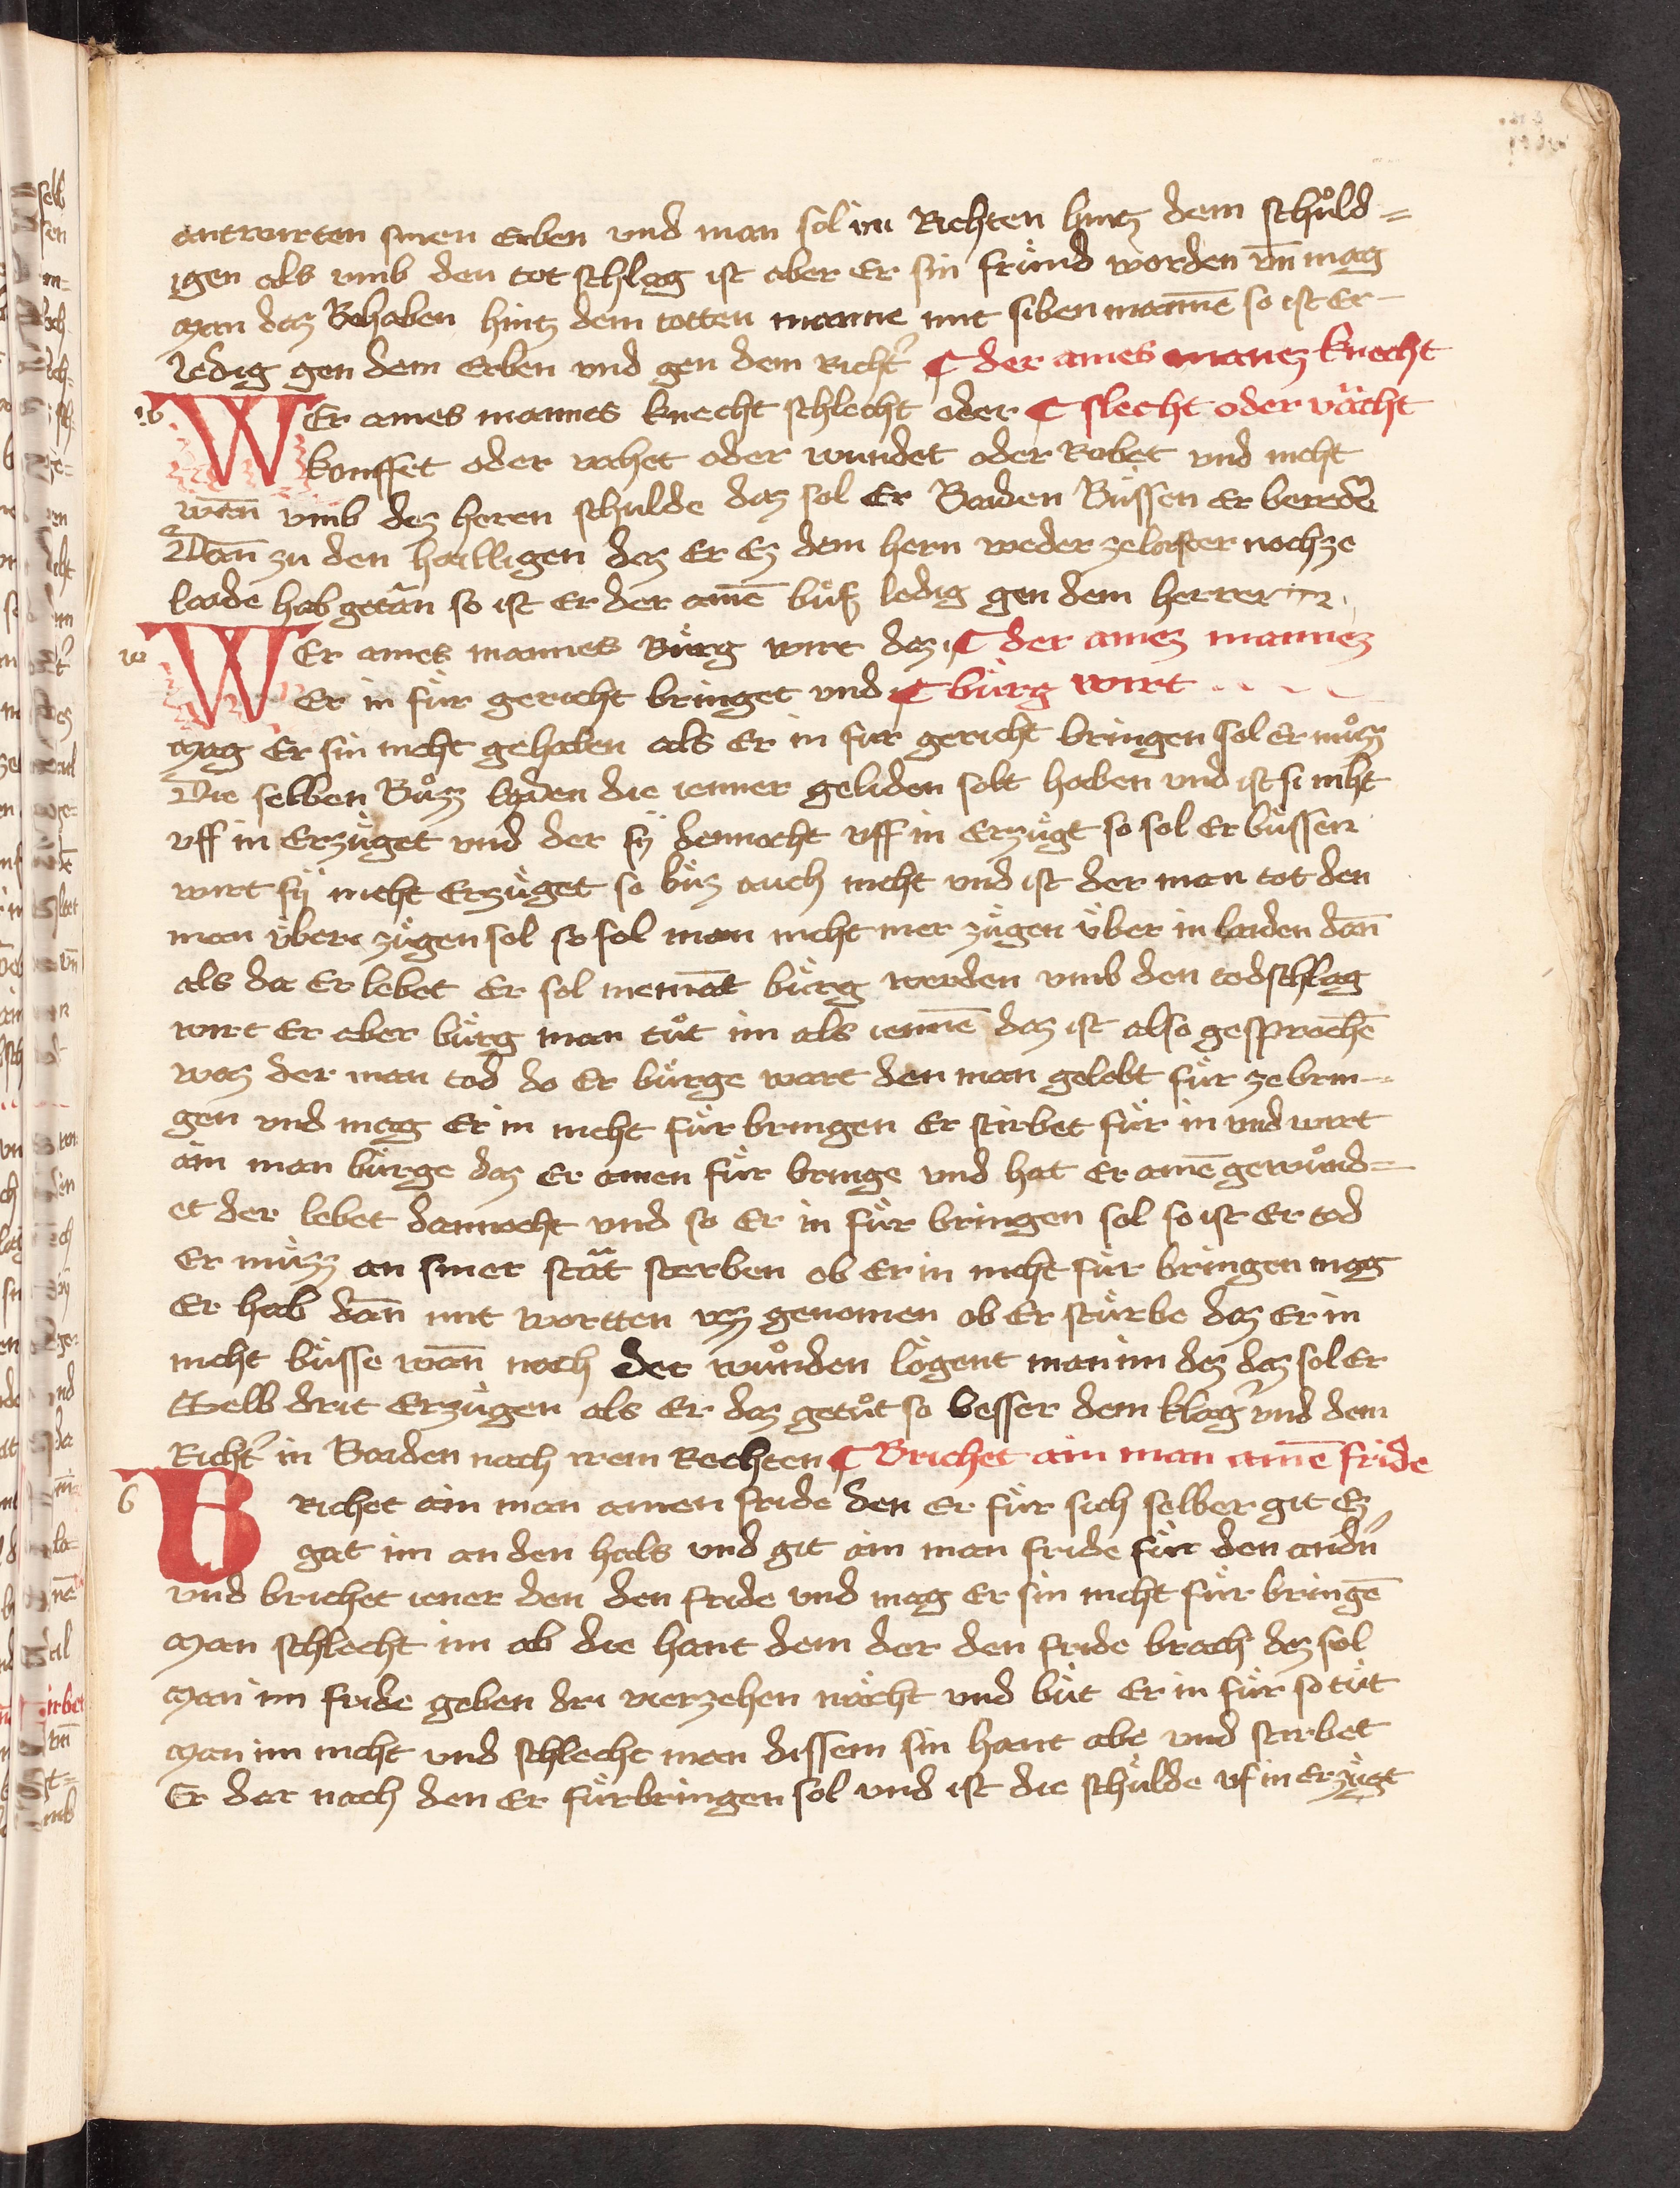 antwurten sinen Erben vnd man sol im Richten hintz dem schůld=
igen als vmb den tot schlag ist aber Er sin fründ worden vn̄ mag
man daz Behaben hintz dem totten manne mit siben mannē so ist Er
ledig gen dem Erben vnd gen dem Richt̕ ¶ der aines manez knecht
WEr aines mannes knecht schlecht oder ¶ slecht oder vächt
konffet oder vahet oder wundet oder Robet vnd nicht
wan̄ vmb dez heren schulde daz sol Er Baiden Büssen Er berede
Dan̄ zu den hailligen daz Er Ez dem hern weder ze laster noch ze
laide hab getan so ist Er der ainē büß ledig gen dem herren
WEr aines mannes Bürg wirt daz ¶ der ainez mannez
Er in für gericht bringet vnd ¶ bürg wirt
mag Er sin nicht gehaben als Er in für gericht bringen sol Er můzz
Die selben Bůzz liden die ienner geliden solt haben vnd ist si nicht
vff in Erzüget vnd der sÿ dennocht vff in Erzügt so sol Er büssen
wirt sÿ nicht Erzüget so büz auch nicht vnd ist der man tot den
man über zügen sol so sol man nicht mer zügen über in laiden dan̄
als da Er lebet Er sol niemāt bürg werden vmb den todschlag
wirt Er aber bürg man tůt im als iennē daz ist also gesprochē
waz der man tod do Er bürge wart den man gelobt für ze brin-
gen vnd mag Er in nicht für bringen Er stirbet für in vnd wirt
ain man bürge daz Er ainen für bringe vnd hat Er ainē gewůnd=
et der lebet dannocht vnd so Er in für bringen sol so ist Er tod
Er müzz an siner stät sterben ob Er in nicht für bringen mag
Er hab dan̄ mit wortten vz genomen ob Er stürbe daz Er in
nicht büsse wan̄ nach der wůnden lögent man im dez daz sol Er
Selb drit Erzügen als Er daz getůt so besser dem klag̕ vnd dem
Richt̕ in Baiden nach irem Rechten ¶ Brichet ain man ainē fride
Brichet ain man ainen fride den Er für sich selber git Ez
gat im an den hals vnd git ain man fride für den andn̕
vnd brichet iener den den fride vnd mag Er sin nicht für bringē
man schlecht im ab die hant dem der den fride brach daz sol
man im fride geben dri vierzehen nächt vnd büt Er in für so tůt
man im nicht vnd schlecht man dissem sin hant abe vnd stirbet
Er der nach den Er fürbringen sol vnd ist die schulde vf in erzügt